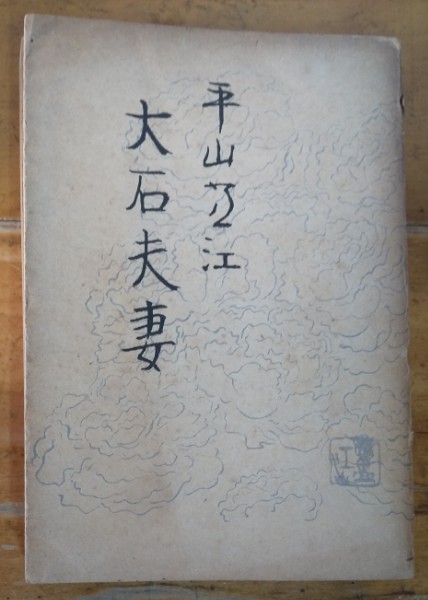 平山芦江
大石夫妻